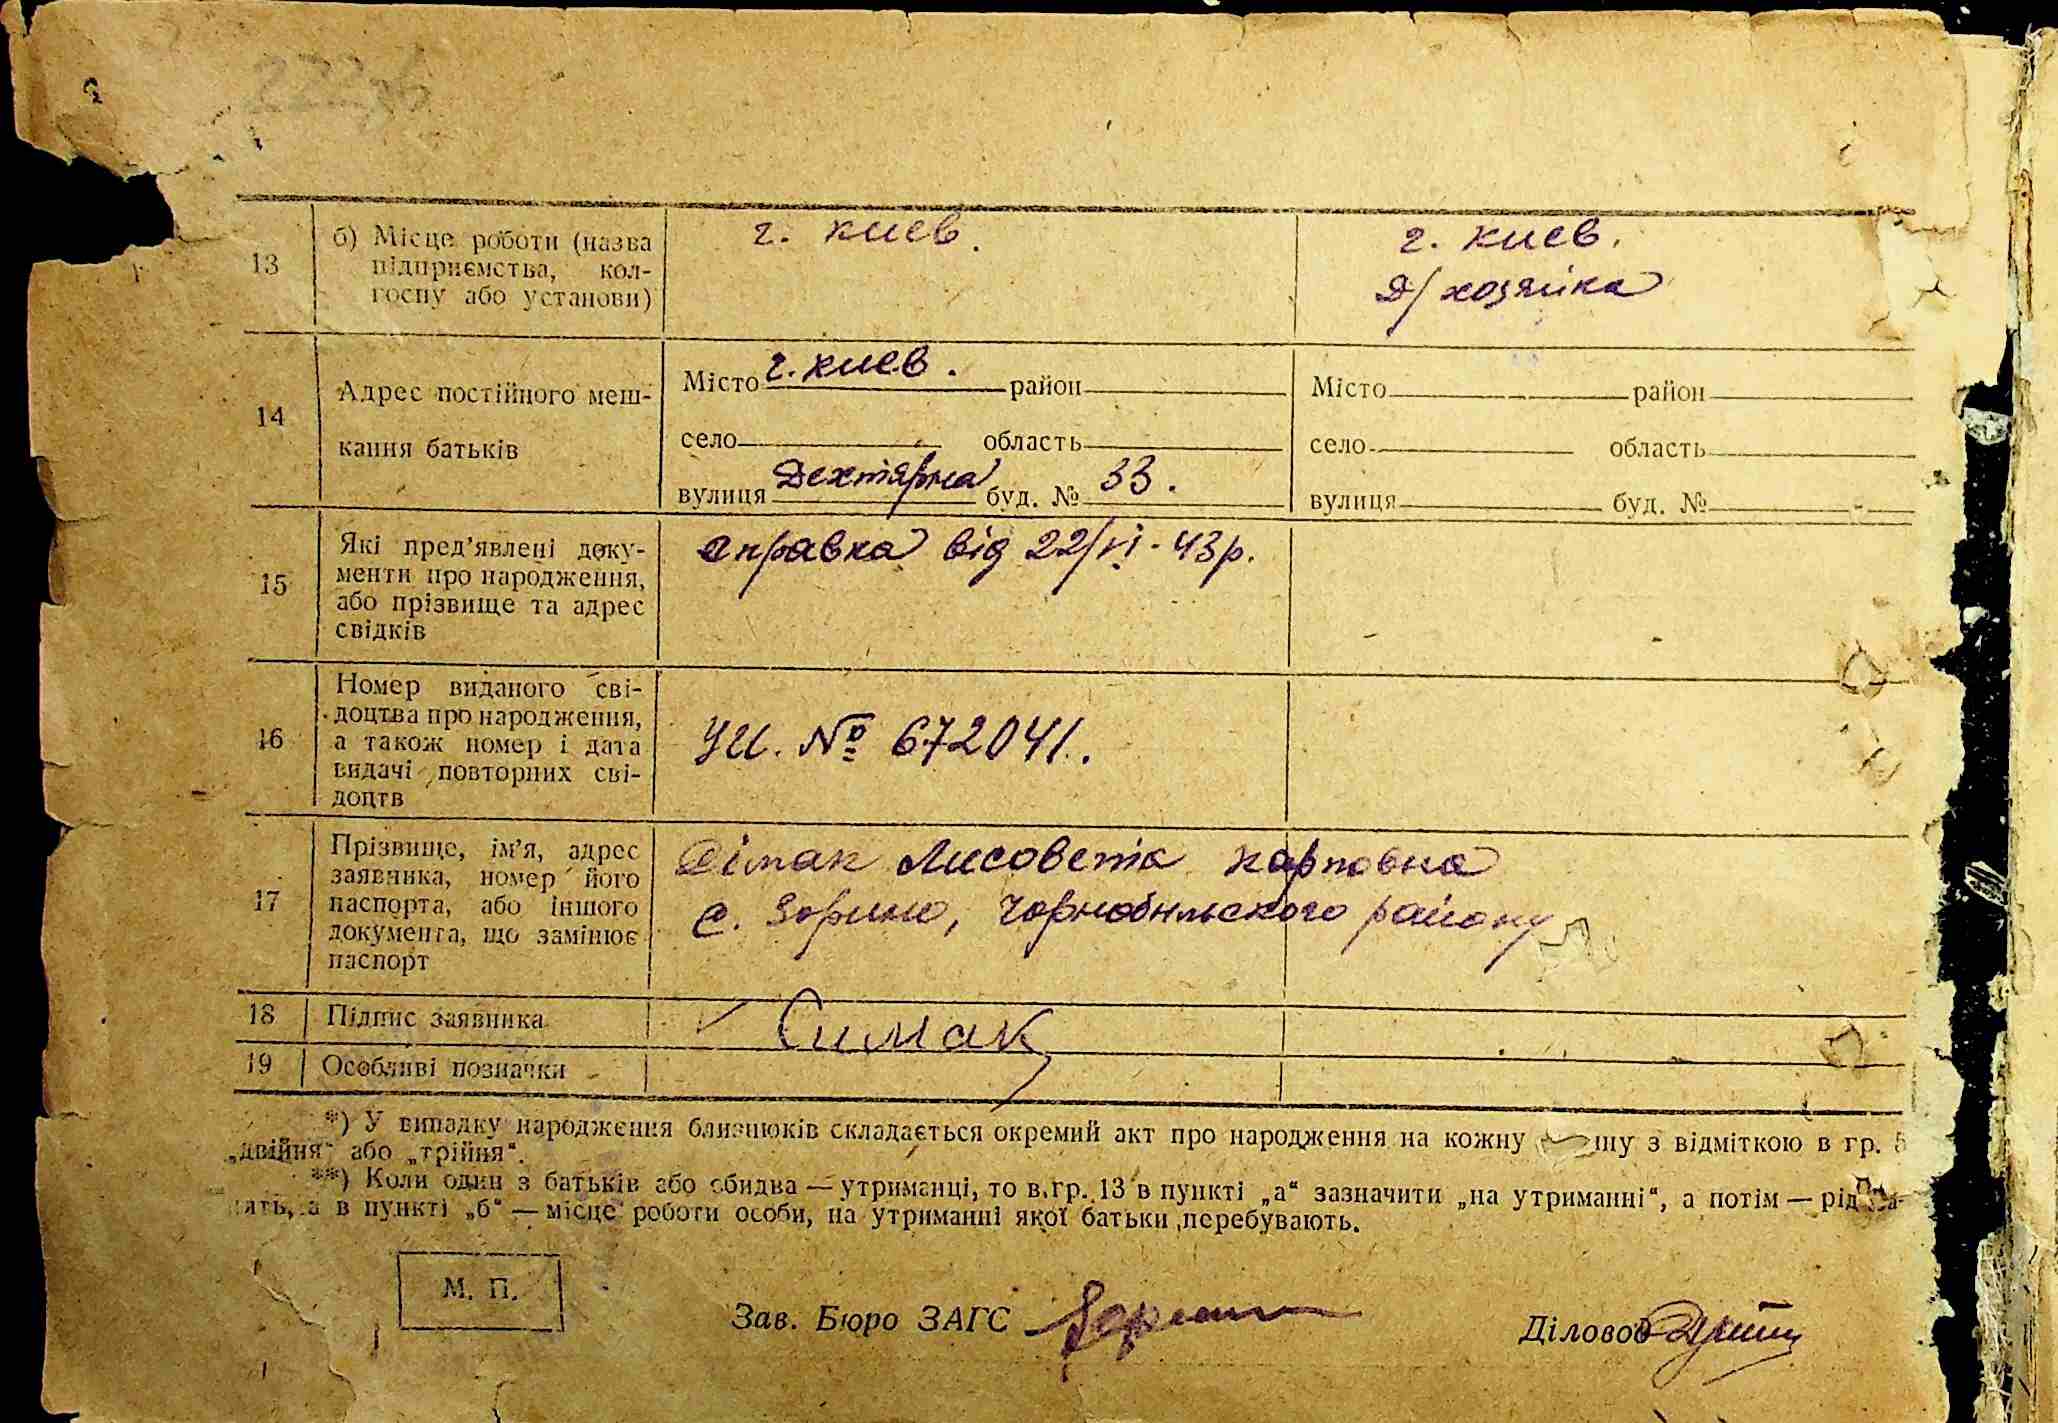 13
б) Місце роботи (назва
підприємства, кол-
госпу або установи)
г. Киев.
г. Киев.
д/хозяйка
14
Адрес постійного меш-
кання батьків
Місто г. Киев. район
село область
вулиця Дехтярна буд. № 33.
Місто район
село область
вулиця буд. №
15
Які пред’явлені доку-
менти про народження,
або прізвище та адрес
свідків
Справка від 22/VI-43р.
16
Номер виданого сві-
доцтва про народження,
а також номер і дата
видачі повторних сві-
доцтв
№ 672041.
17
Прізвище, ім’я, адрес
заявника, номер його
паспорта, або іншого
документа, що замінює
паспорт
Сімак Лисовета Карповна
с. Зорино, Чорнобильского району
18
Підпис заявника
Симак
19
Особливі позначки
*) У випадку народження близнюків складається окремий акт про народження на кожну з відміткою в гр. 5
„двійня“ або „трійня“.
**) Коли один з батьків або обидва — утриманці, то в гр. 13 в пункті „а“ зазначити „на утриманні“, а потім — рід за-
нять, а в пункті „б“ — місце роботи особи, на утриманні якої батьки перебувають.
М. П.
Зав. Бюро ЗАГС
Діловод